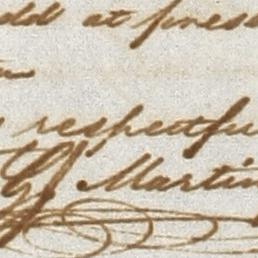 add at prese
respectfu
Martin